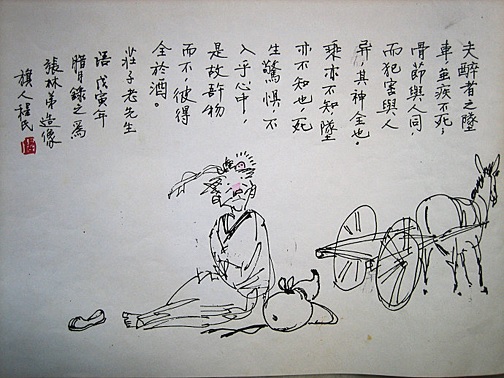 夫醉者之墜
車,虽疾不死,
骨節與人同,
而犯害與人
异其神全也。
乘亦不知墜
亦不知也,死
生驚惧不
入乎心中,
是故許物
而不,彼得
全於酒。
莊子老先生
语戊寅年
腊錄之爲
張林弟造像
旗人民